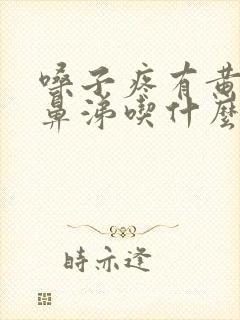 嗓子疼有黄
鼻涕喫什麼
時亦逢